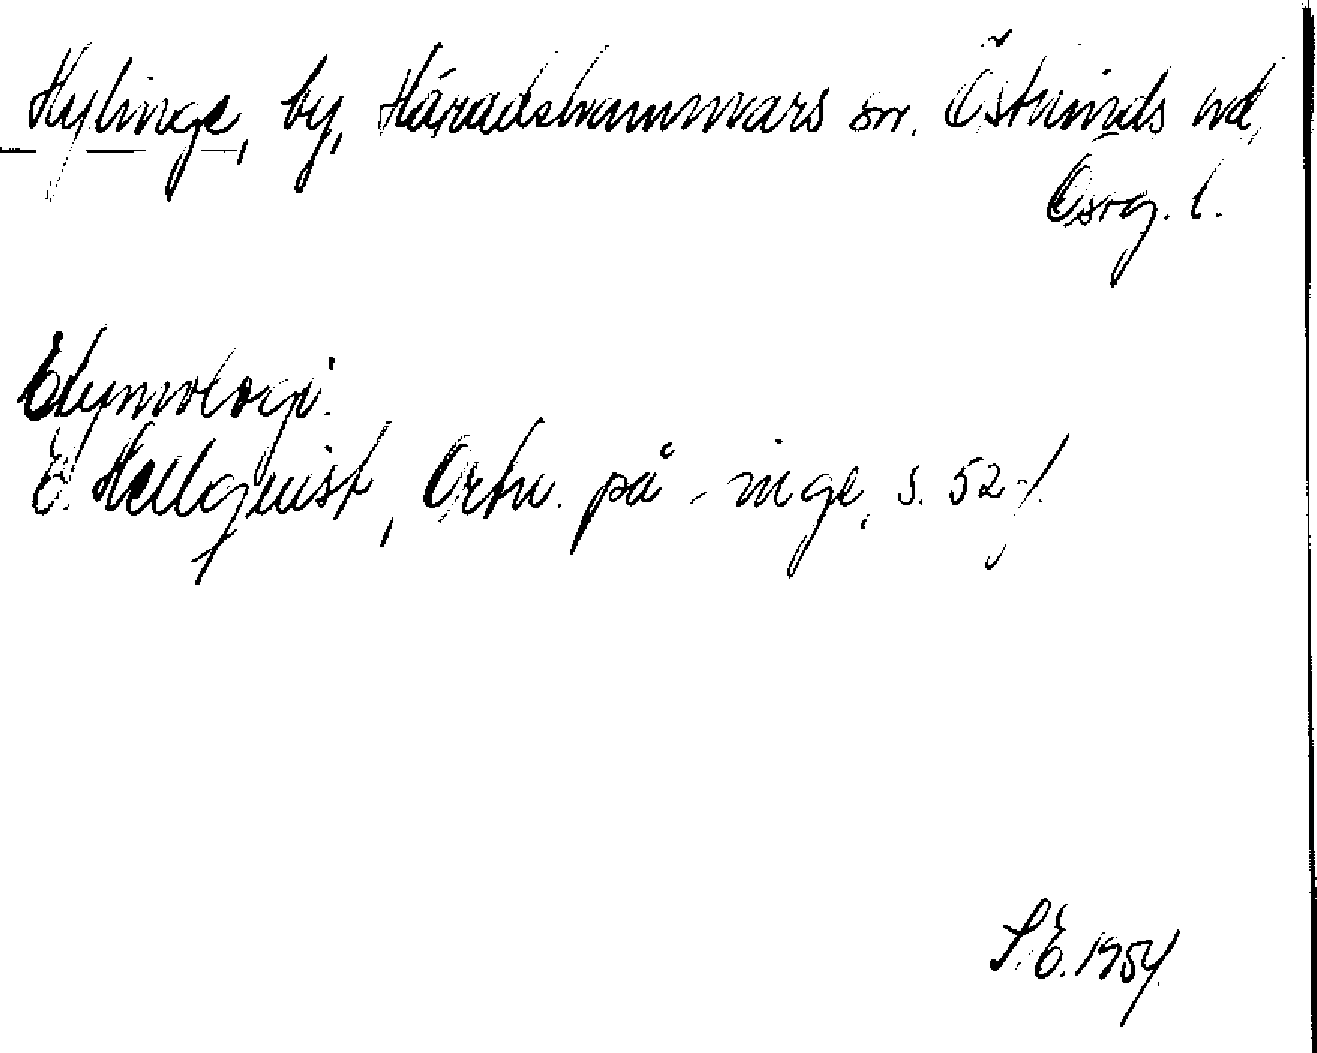 Hylinge, by, Häradshammars sn. Östkinds hd,
Östg. l.
Etymologi.
E. Hellquist, Ortn. på -inge, s. 52 f.
S. E. 1954